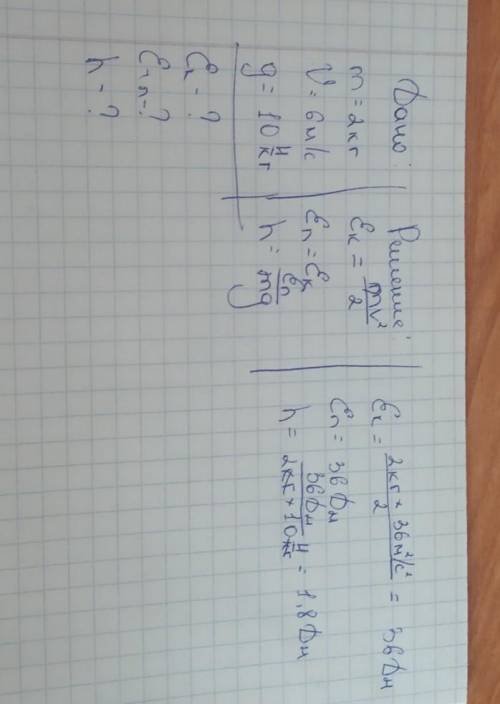 Дано:
m = 2кг
V = 6 м/с
g = 10 Н/кг
Eк - ?
Eп - ?
h - ?
Решение:
Eк = mv²/2
Eп = Eк
h = Eп/mg
Eк = 2кг × 36м²/с²/2 = 36 Дж
Eп = 36 Дж
h = 36 Дж/2кг × 10 Н/кг = 1,8 Дж